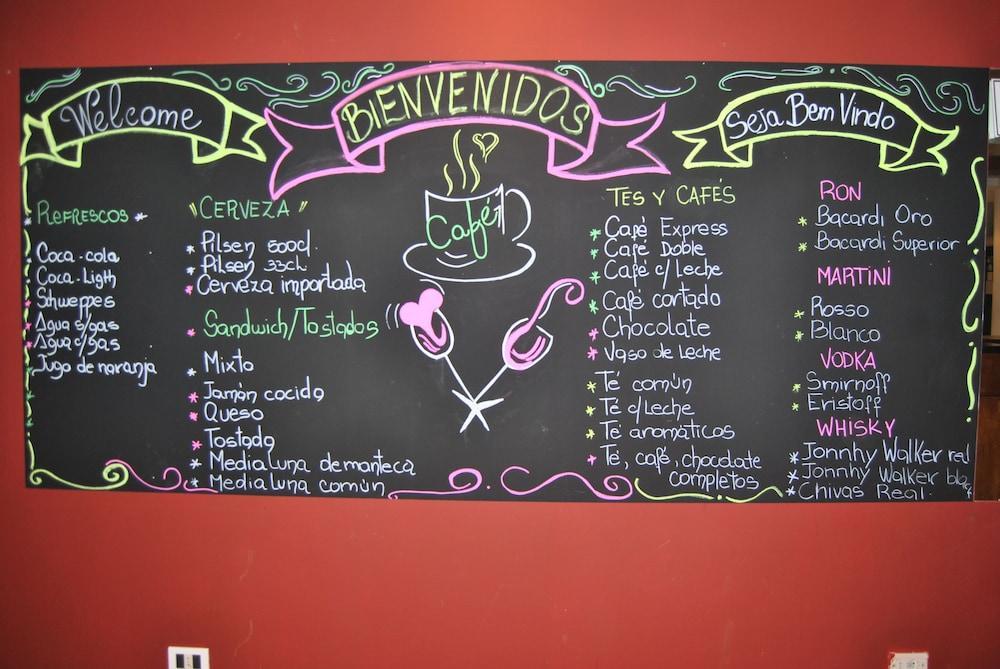 Welcome
BIENVENIDOS
Seja Bem Vindo
REFRESCOS
Coca-cola
Coca-Ligth
Shweppes
Agua s/gas
Agua c/gas
Jugo de naranja
"CERVEZA"
Pilsen 500cl.
Pilsen 33cl.
Cerveza importada
Sandwich/Tostados
Mixto
Jamón cocido
Queso
Tostado
Medialuna de manteca
Medialuna común
Café
TES Y CAFÉS
Café Express
Café Doble
Café c/Leche
Café cortado
Chocolate
Vaso de Leche
Té común
Té c/Leche
Té aromáticos
Té, café, chocolate
completos
RON
Bacardi Oro
Bacardi Superior
MARTINI
Rosso
Blanco
VODKA
Smirnoff
Eristoff
WHISKY
Jonnhy Walker red
Jonnhy Walker black
Chivas Real.